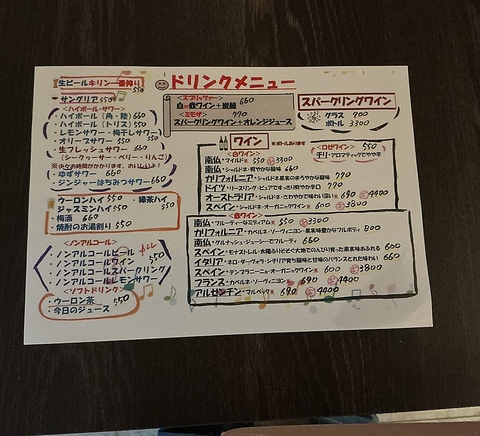 ドリンクメニュー
生ビールキリン一番搾り 550
サングリア 550
<ハイボール・サワー>
・ハイボール（角・陸） 660
・ハイボール（トリス） 550
・レモンサワー・梅干しサワー
・オリーブサワー 550
・生フレッシュサワー 660
（シークヮーサー・ベリー・りんご）
・ゆずサワー 660
・ジンジャーはちみつサワー 660
・ウーロンハイ 550 ・緑茶ハイ
・ジャスミンハイ 550 550
・梅酒 660
・焼酎のお湯割り 550
<ノンアルコール>
・ノンアルコールビール
・ノンアルコールワイン 550
・ノンアルコールスパークリング
・ノンアルコールレモンサワー
<ソフトドリンク>
・ウーロン茶 550
・今日のジュース
<スプリッツァー>
白or赤ワイン+炭酸 660
<ミモザ> 770
スパークリングワイン+オレンジジュース
スパークリングワイン
グラス 700
ボトル 3300
ワイン
<ロゼワイン> 550
チリ・アロマティックでやや辛
<白ワイン>
南仏・マイルド 550 3300
南仏・シャルドネ 660
カリフォルニア・シャルドネ 770
ドイツ・リースリング・ピュアですっきり爽やか辛口 770
オーストラリア・シャルドネ 690 4400
スペイン・シャルドネ・オーガニックワイン 600 3800
<赤ワイン>
南仏・フルーティーなミディアム 550 3300
カリフォルニア・カベルネ・ソーヴィニヨン 800
南仏・グルナッシュ・ジューシーでフルーティ 660
スペイン・モナストレル 600
イタリア・ネロ・ダーヴォラ 660
スペイン・テンプラニーニョ・オーガニックワイン 600 3800
フランス・カベルネ・ソーヴィニヨン 690 4400
アルゼンチン・マルベック 690 4400